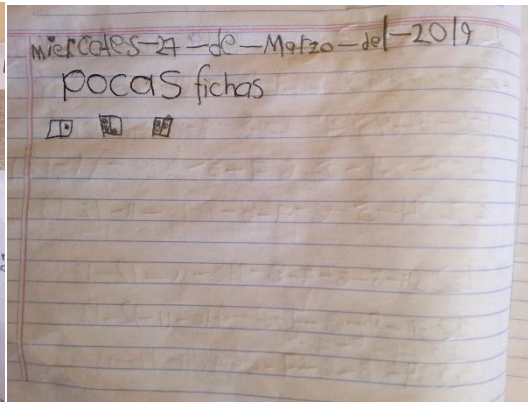 miercoles-27-de-Marzo-del-2019
pocas fichas